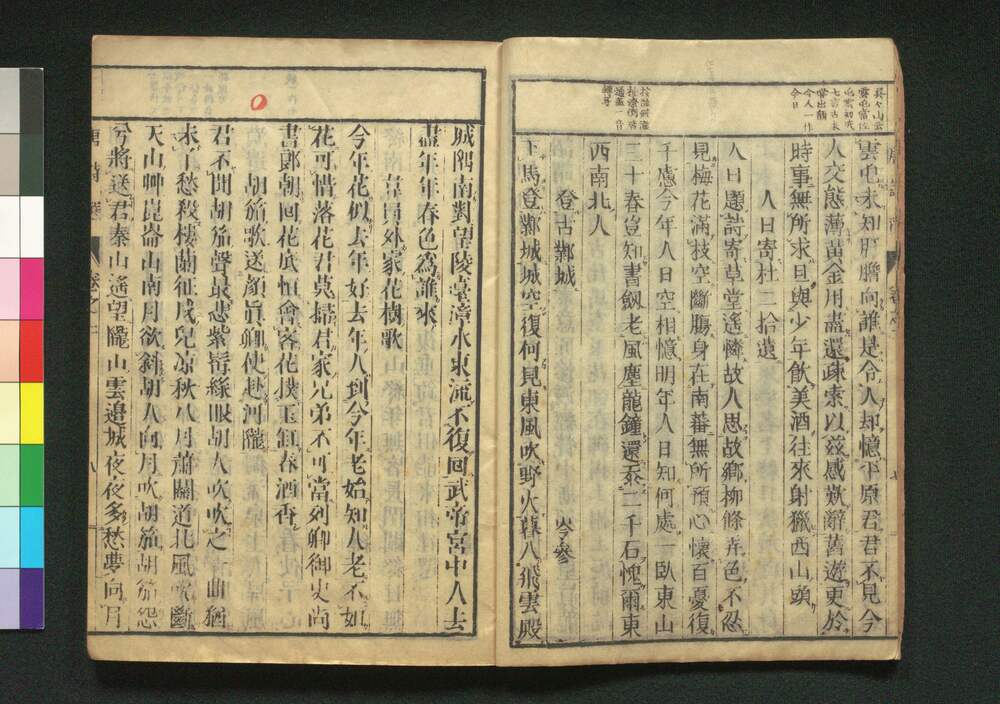 雲屯未知肝膽向誰是令人却憶平原君君不見今
人交態薄黃金用盡還疎索以茲感歎辭舊遊更於
時事無所求且與少年飲美酒往來射獵西山頭
人日寄杜二拾遺
人日題詩寄草堂遙憐故人思故鄉柳條弄色不忍
見梅花滿枝空斷腸身在南蕃無所預心懷百憂復
千慮今年人日空相憶明年人日知何處一臥東山
三十春豈知書劔老風塵龍鐘還忝二千石愧爾東
西南北人
登古鄴城 岑參
下馬登鄴城城空復何見東風吹野火暮入飛雲殿
城隅南對望陵臺漳水東流不復回武帝宮中人去
盡年年春色為誰來
韋員外家花樹歌
今年花似去年好去年人到今年老始知人老不如
花可惜落花君莫掃君家兄弟不可當列卿御史尚
書郎朝回花底恒會客花撲玉缸春酒香
胡笳歌送顏眞卿使赴河隴
君不聞胡笳聲最悲紫髯綠眼胡人吹吹之一曲猶
未了愁殺樓蘭征戍兒凉秋八月蕭關道北風吹斷
天山艸崑崙山南月欲斜胡人向月吹胡笳胡笳怨
兮將送君秦山遙望隴山雲邊城夜夜多愁夢向月
唐詩選 卷之二 八